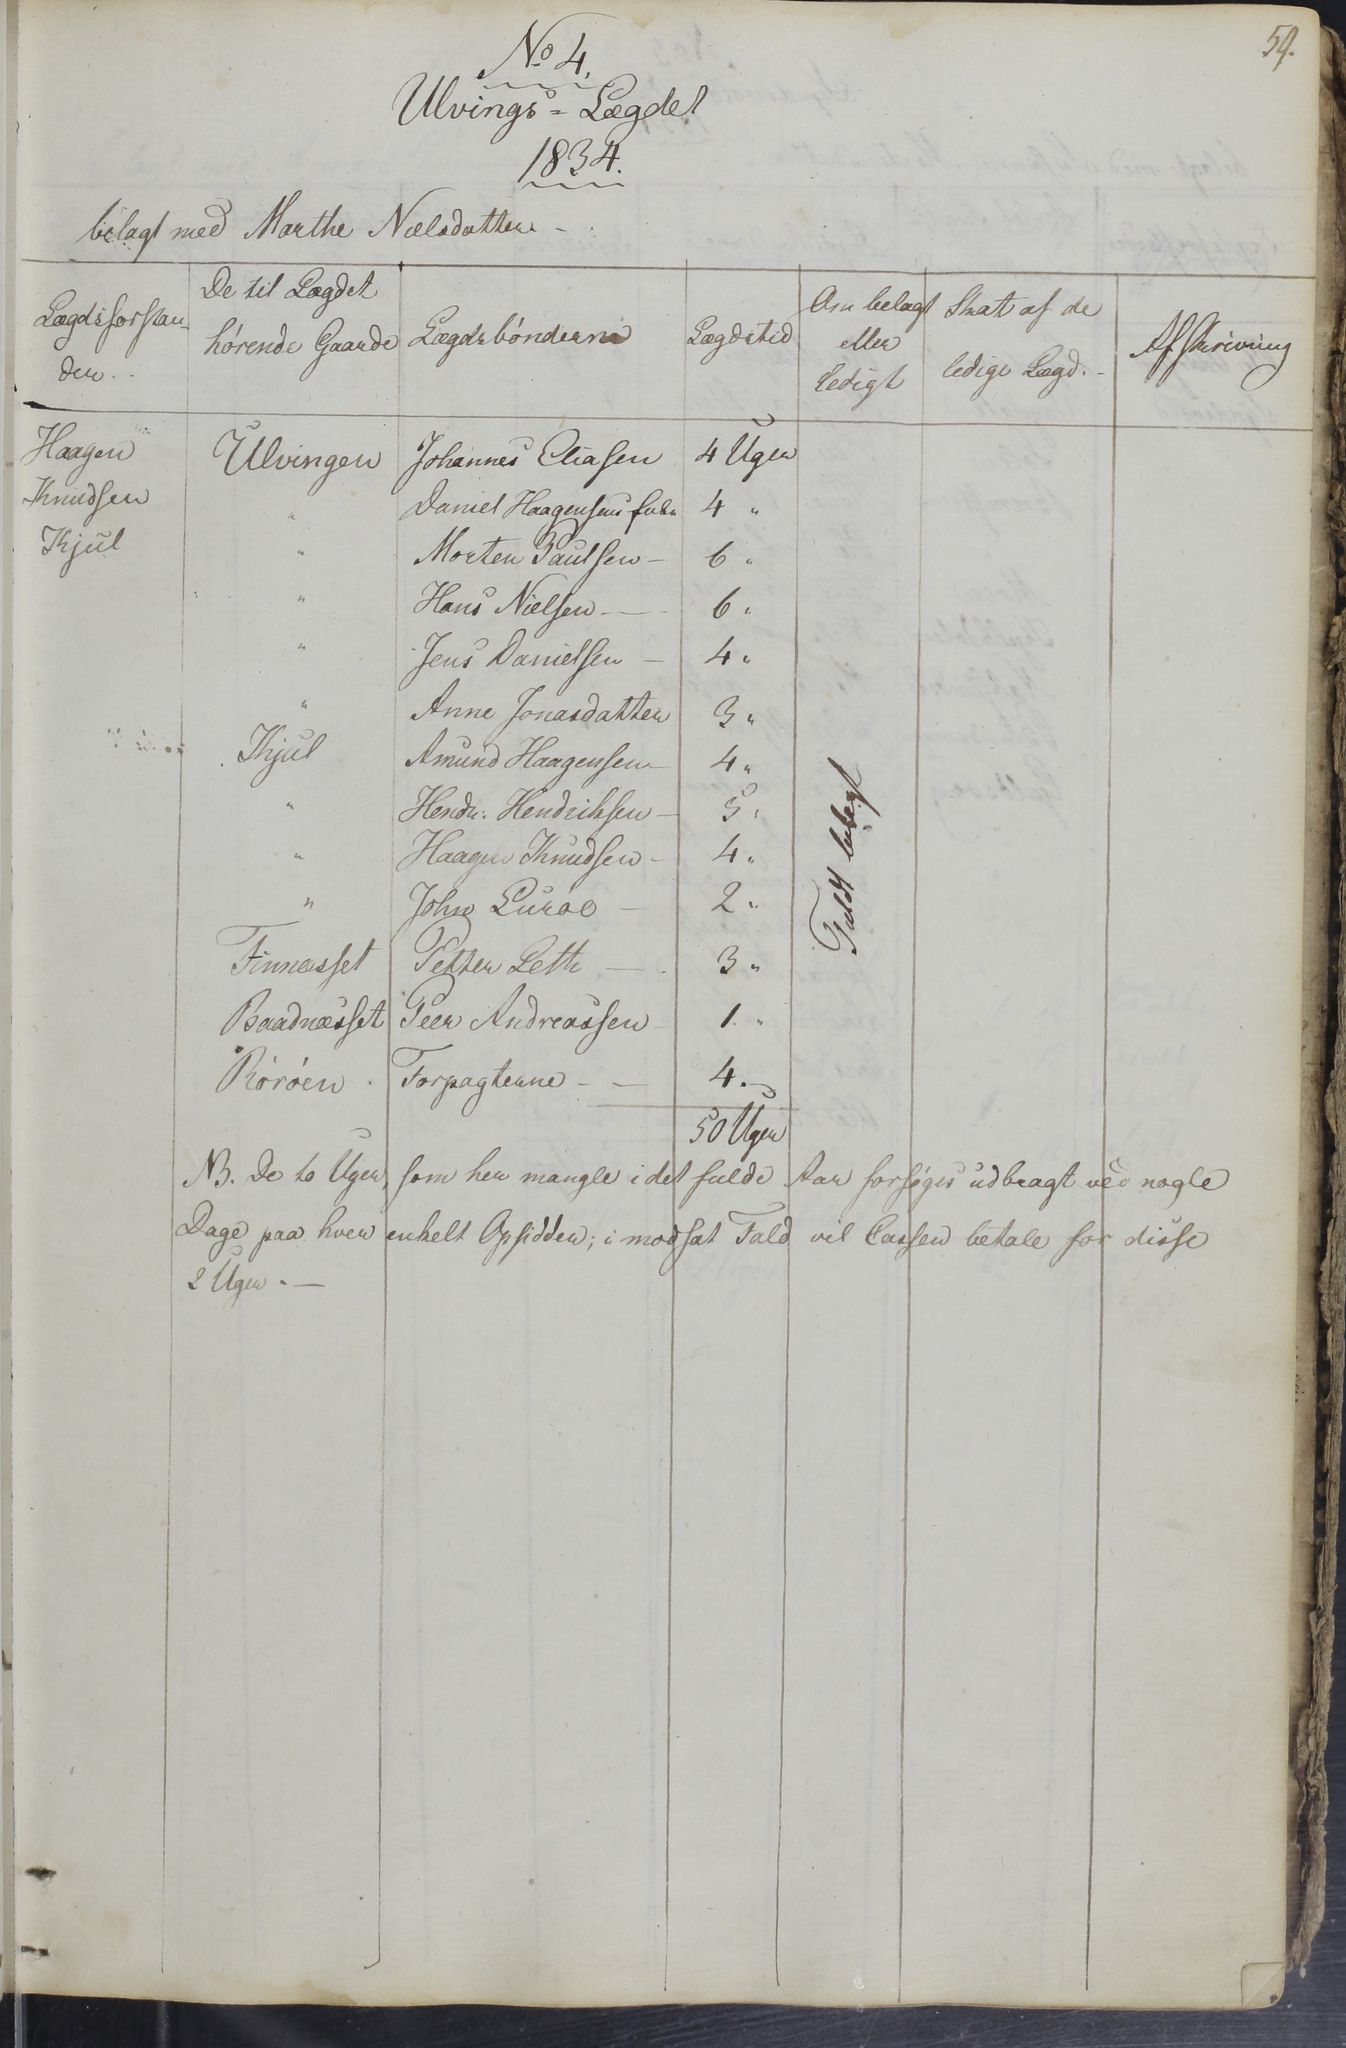 59.
No 4.
Ulvings-Lægdet
1834.
belagt med Marthe Nielsdatter -
Lægdsforstan-
der..
De til Lægdet
hørende Gaarde
Lægdsbønderne
Lægdstid
Om belagt
eller
ledigt
Skat af de
ledige Lægd.-
Afskrivning
Haagen Ulvingen Johannes Eliasen 4 Uger
Knudsen " Daniel Haagensens 4 "
Kjul " Morten Paulsen - 6 "
" Hans Nielsen - 6 "
" Jens Danielsen - 4 "
" Anne Jonasdatter 3 "
Kjul Amund Haagensen - 4 "
" Hendr. Hendriksen - 5 "
" Haagen Knudsen - 4 "
" John Luroe - 2 "
Finnæsset Petter Leth - 3 "
Baadnæsset Peer Andreassen - 1 "
Rørøen Forpagterne - - 4. -
Fuldt belagt
50 Uger
NB. De to Uger, som her mangle i det fulde Aar forsøges udbragt ved nogle
Dage paa hver enkelt Opsidder; i modsat Fald vil Cassen betale for disse
2 Uger. -